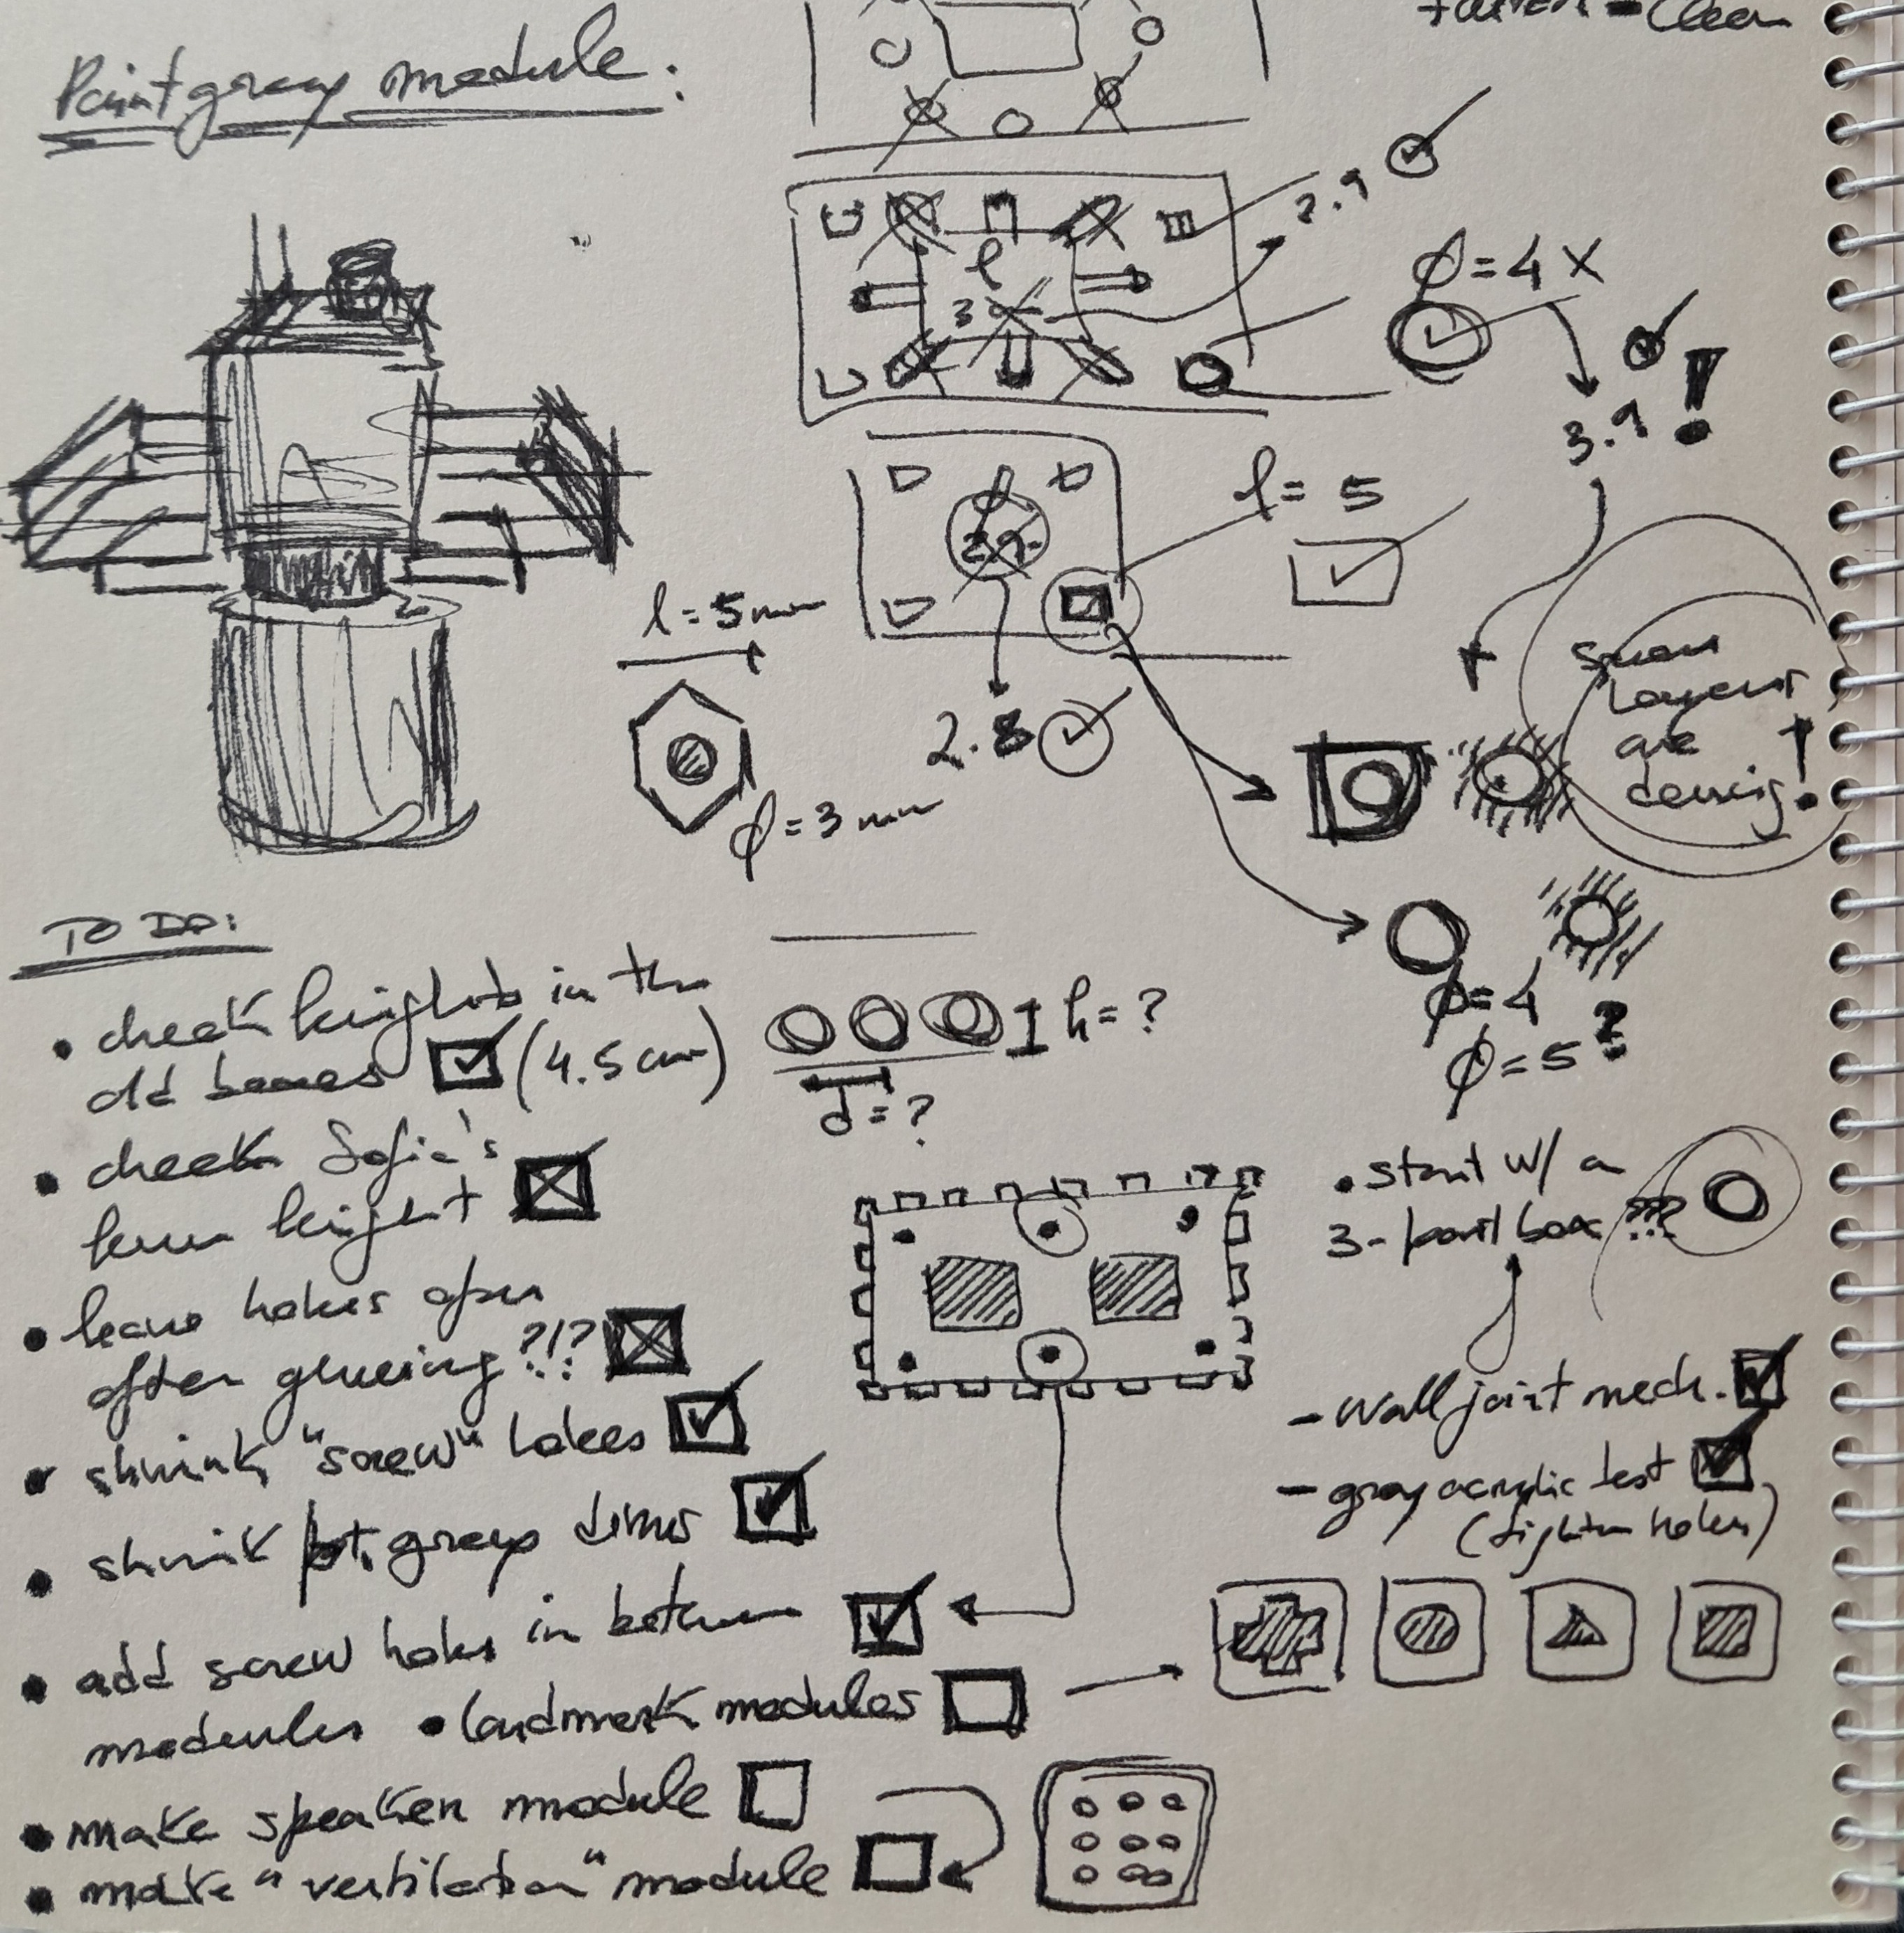 = Clear
Pointgrey module:
2.9
l
3
ϕ=4 X
3.9 !
l= 5
ϕ
2.9
l=5mm
2.8
ϕ=3mm
layers
are
!
ϕ=4
ϕ=5 ?
TO DO:
• check heights in the
old boxes (4.5 cm)
h=?
d=?
• check Sofia's
height
• leave holes open
after glueing ?!?
• shrink "screw" holes
• shrink pt. grey dims
• add screw holes in between
modules • landmark modules
• make speaker module
• make "ventilation" module
• start w/ a
3-part box ???
- wall joint mech.
- gray acrylic test
(tighter holes)